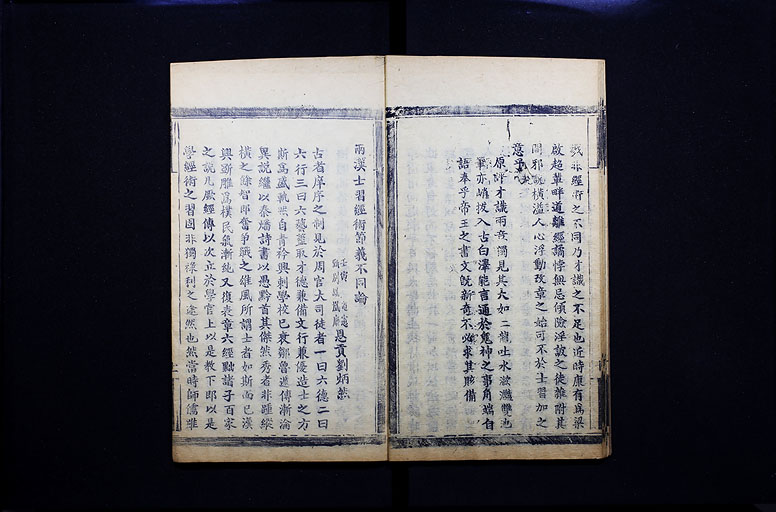 哉非經術之不同乃才識之不足也近時康有為梁
啟超輩畔道離經譸悖無忌傾險淫詖之徒雜附其
間邪說橫溢人心浮動改章之始可不於士習加之
意乎
原評才識兩音獨見其大如二龍吐水滋滋雙池
筆亦峭拔入古白澤能言通於鬼神之事角端自
語奉乎帝王之書文既新奇不必求其賅備
兩漢士習經術節義不同論
恩貢劉炳
古者庠序之制見於周官大司徒者一曰六德二曰
六行三曰六藝蓋取才德兼備文行兼優造士之方
斯為盛軌哉自青衿興刺學校已衰鄒魯遺傳漸淪
異說繼以秦燔詩書以愚黔首其傑然秀者非踵縱
橫之餘智即奮爭戰之雄風所謂士者如斯而已漢
興斲雕為樸民氣漸純又復表章六經黜諸子百家
之說凡厥經傳以次立於學官上以是教下即以是
學經術之習固非獨祿利之途然也然當時師儒雖